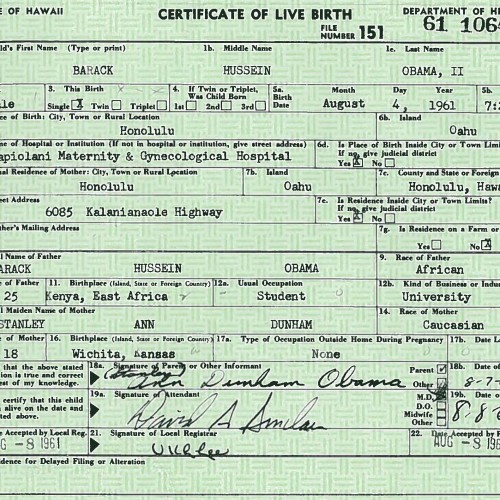 E OF HAWAII CERTIFICATE OF LIVE BIRTH DEPARTMENT OF HE
FILE NUMBER 151 61 1064
ld's First Name (Type or print) 1b. Middle Name 1c. Last Name
BARACK HUSSEIN OBAMA, II
3. This Birth 4. If Twin or Triplet, Was Child Born 5a. Birth Date Month Day Year 5b.
le Single X Twin Triplet 1st 2nd 3rd August 4, 1961 7:2
ce of Birth: City, Town or Rural Location 6b. Island
Honolulu Oahu
me of Hospital or Institution (If not in hospital or institution, give street address) 6d. Is Place of Birth Inside City or Town Limits? If no, give judicial district
apiolani Maternity & Gynecological Hospital Yes X No
al Residence of Mother: City, Town or Rural Location 7b. Island 7c. County and State or Foreign
Honolulu Oahu Honolulu, Hawa
eet Address 7e. Is Residence Inside City or Town Limits? If no, give judicial district
6085 Kalanianaole Highway Yes X No
ther's Mailing Address 7g. Is Residence on a Farm or
Yes No X
l Name of Father 9. Race of Father
ARACK HUSSEIN OBAMA African
11. Birthplace (Island, State or Foreign Country) 12a. Usual Occupation 12b. Kind of Business or Indu
25 Kenya, East Africa Student University
l Maiden Name of Mother 14. Race of Mother
STANLEY ANN DUNHAM Caucasian
16. Birthplace (Island, State or Foreign Country) 17a. Type of Occupation Outside Home During Pregnancy 17b. Date La
18 Wichita, Kansas None
that the above stated ion is true and correct est of my knowledge. 18a. Signature of Parent or Other Informant Parent Other 18b. Date of
(Stanley) Ann Dunham Obama 8-7-
certify that this child n alive on the date and ted above. 19a. Signature of Attendant M.D. D.O. Midwife Other 19b. Date of
David A Sinclair 8-8-6
Accepted by Local Reg. 21. Signature of Local Registrar 22. Date Accepted by R
G -8 1961 U K L Lee AUG -8 196
idence for Delayed Filing or Alteration